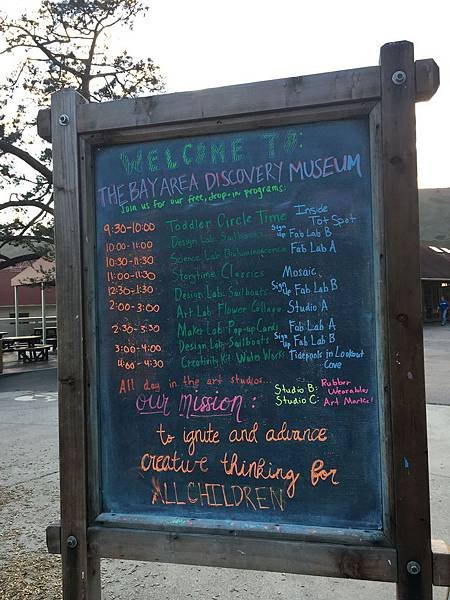 WELCOME TO:
THE BAY AREA DISCOVERY MUSEUM
Join us for our free, drop-in programs:
9:30-10:00 Toddler Circle Time Inside Tot Spot
10:00-11:00 Design Lab: Sailboats Sign up Fab Lab B
10:30-11:30 Science Lab: Bioluminescence Fab Lab A
11:00-11:30 Storytime Classics Mosaic
12:30-1:30 Design Lab: Sailboats Sign up Fab Lab B
2:00-3:00 Art Lab: Flower Collage Studio A
2:30-3:30 Make Lab: Pop-up Cards Fab Lab A
3:00-4:00 Design Lab: Sailboats Sign up Fab Lab B
4:00-4:30 Creativity Kit: Water Works Tidepools in Lookout Cove
All day in the art studios... Studio B: Rubber Wearables
Studio C: Art Market!
our mission:
to ignite and advance
creative thinking for
ALL CHILDREN